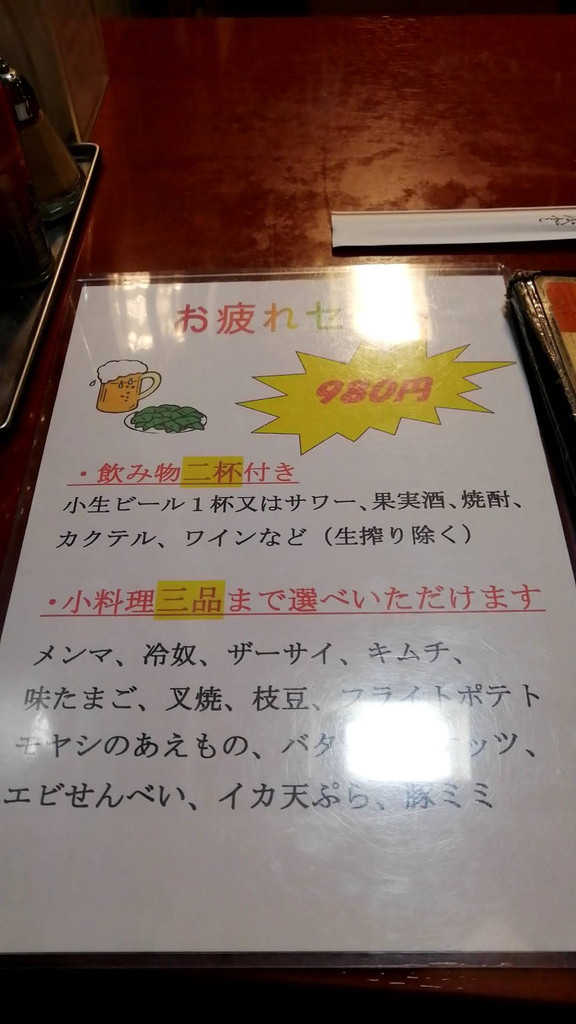 お疲れセ
980円
・飲み物二杯付き
小生ビール１杯又はサワー、果実酒、焼酎、
カクテル、ワインなど（生搾り除く）
・小料理三品まで選べいただけます
メンマ、冷奴、ザーサイ、キムチ、
味たまご、叉焼、枝豆、フライトポテト
モヤシのあえもの、バタ ナッツ、
エビせんべい、イカ天ぷら、豚ミミ